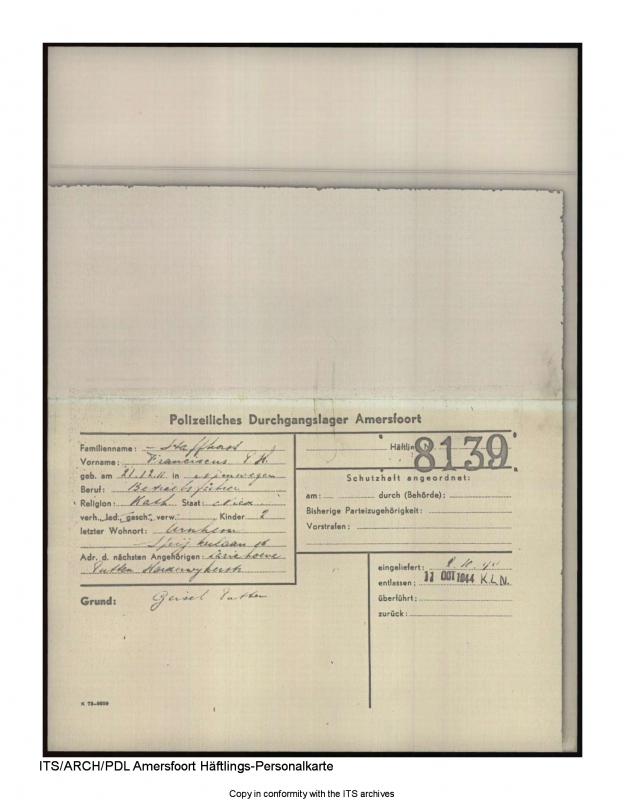 Polizeiliches Durchgangslager Amersfoort
Familienname: Staffhorst
Vorname: Franciscus
geb. am 21.12.11 in Nijmwegen
Beruf: Betriebsführer
Religion: Kath. Staat:
verh., led., gesch., verw. Kinder 2
letzter Wohnort: Arnhem
Adr. d. nächsten Angehörigen
Putten Harderwijkerstr
Grund: Geisel Putten
Häftlin N 8139
Schutzhaft angeordnet:
am: durch (Behörde):
Bisherige Parteizugehörigkeit:
Vorstrafen:
eingeliefert: 10. 44
entlassen: 11 OKT 1944 K.L.N.
überführt:
zurück:
K 73-6609
ITS/ARCH/PDL Amersfoort Häftlings-Personalkarte
Copy in conformity with the ITS archives